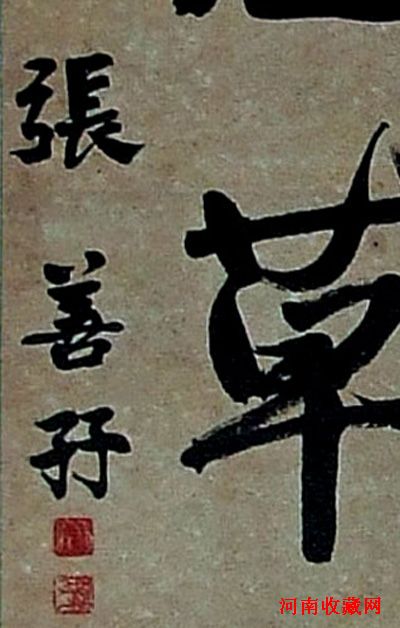 草
張善孖
河南收藏网